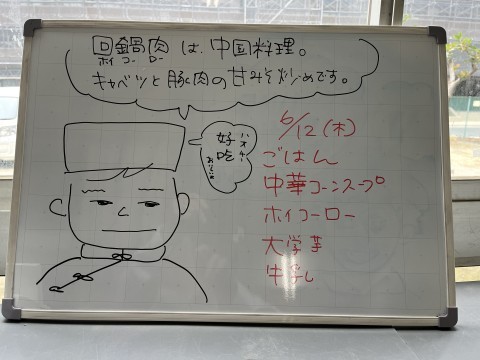 回鍋肉は、中国料理。
ホイコーロー
キャベツと豚肉の甘みそ炒めです。
好吃
ハオチー
おいしい
6/12(木)
ごはん
中華コーンスープ
ホイコーロー
大学芋
牛乳